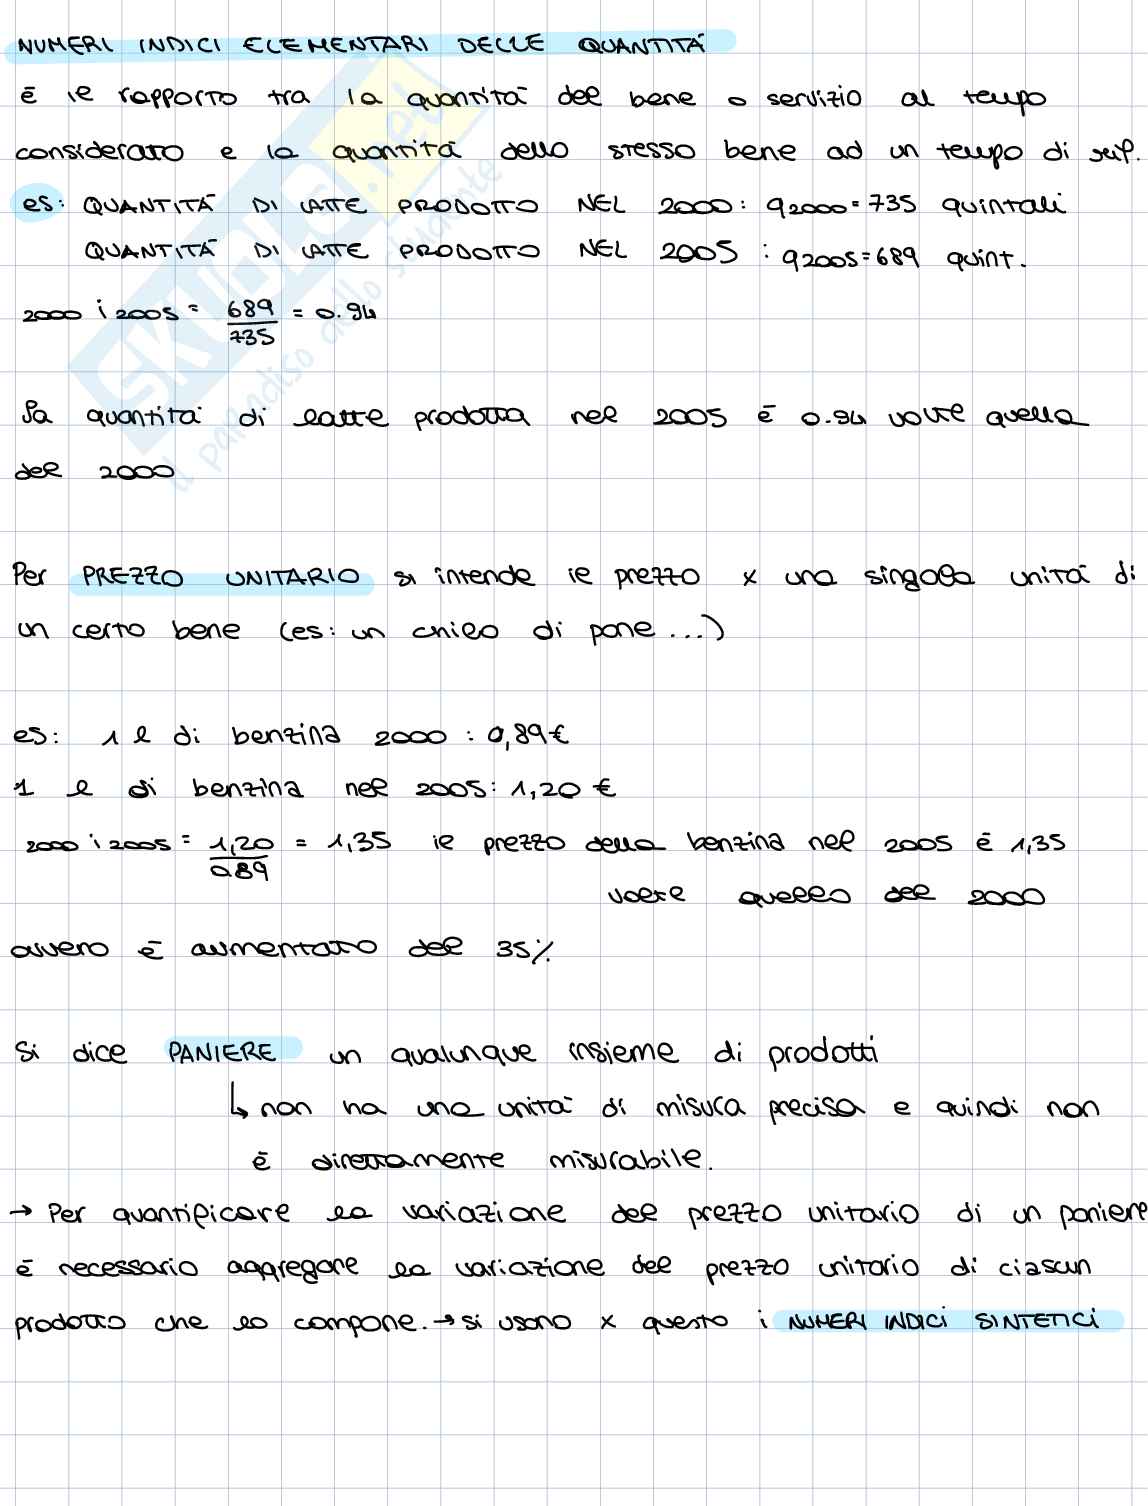 NUMERI INDICI ELEMENTARI DELLE QUANTITÀ
è il rapporto tra la quantità del bene o servizio al tempo
considerato e la quantità dello stesso bene ad un tempo di rif.
es: QUANTITÀ DI LATTE PRODOTTO NEL 2000: q2000=735 quintali
QUANTITÀ DI LATTE PRODOTTO NEL 2005 : q2005=689 quint.
2000 i 2005 = 689/735 = 0.94
La quantità di latte prodotta nel 2005 è 0.94 volte quella
del 2000
Per PREZZO UNITARIO si intende il prezzo x una singola unità di
un certo bene (es: un chilo di pane...)
es: 1 l di benzina 2000 : 0,89€
1 l di benzina nel 2005: 1,20 €
2000 i 2005 = 1,20/089 = 1,35 il prezzo della benzina nel 2005 è 1,35
volte quello del 2000
ovvero è aumentato del 35%
Si dice PANIERE un qualunque insieme di prodotti
↳ non ha una unità di misura precisa e quindi non
è direttamente misurabile.
→ Per quantificare la variazione del prezzo unitario di un paniere
è necessario aggregare la variazione del prezzo unitario di ciascun
prodotto che lo compone. → si usano x questo i NUMERI INDICI SINTETICI
SKUOLA.net
il paradiso dello studente